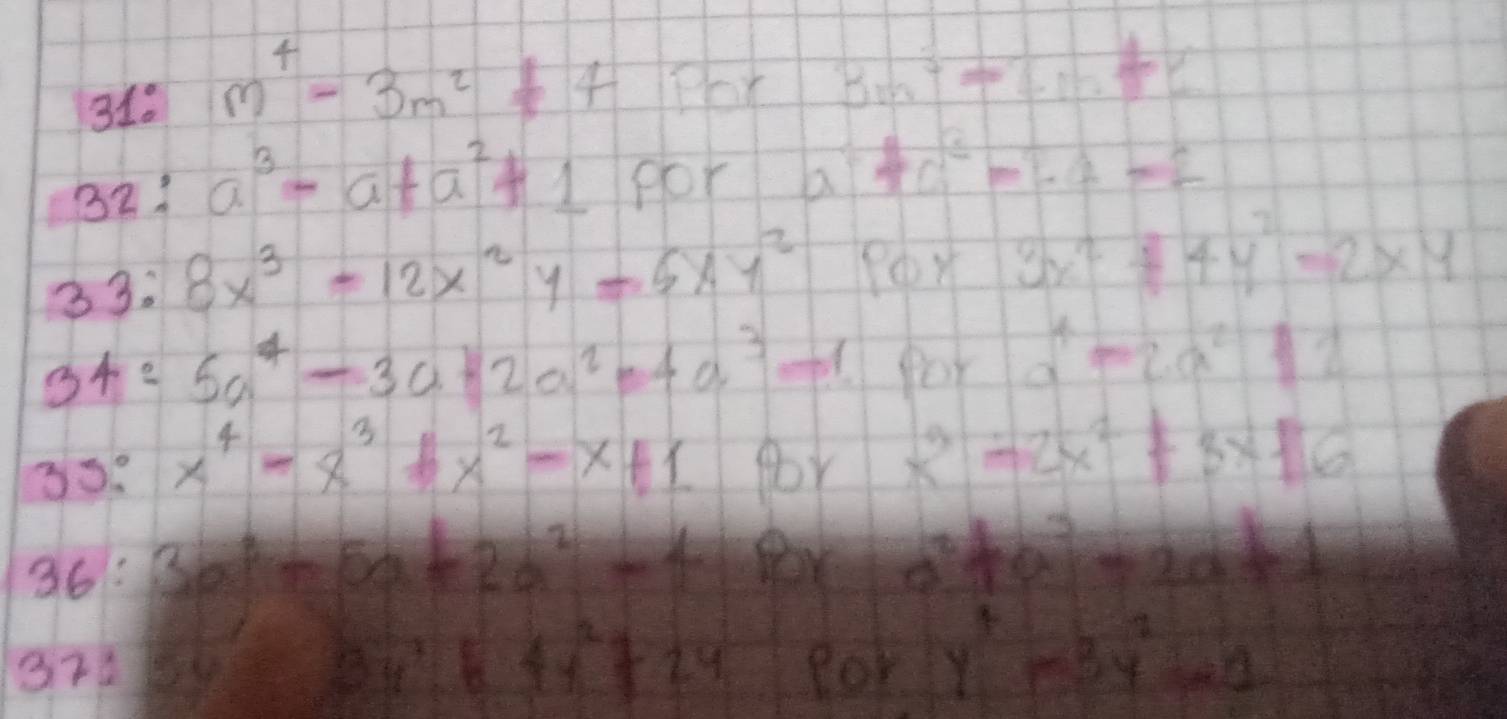 31: m⁴ - 3m² + 4 Por 3m³
32: a³ - a + a² + 1 por
33: 8x³ - 12x²y - 6xy² Por 3x² + 4y² - 2xy
34: 5a⁴ - 3a + 2a² - 4a³ - 1 por a⁴ - 2a²
35: x⁴ - x³ + x² - x + 1 Por x³ - 2x² + 3x + 6
36: 3a³ - 5a + 2a² - 4 Por a² + a³ - 2a + 1
37: 3y³ + 4y² + 2y Por y⁴ - 3y²